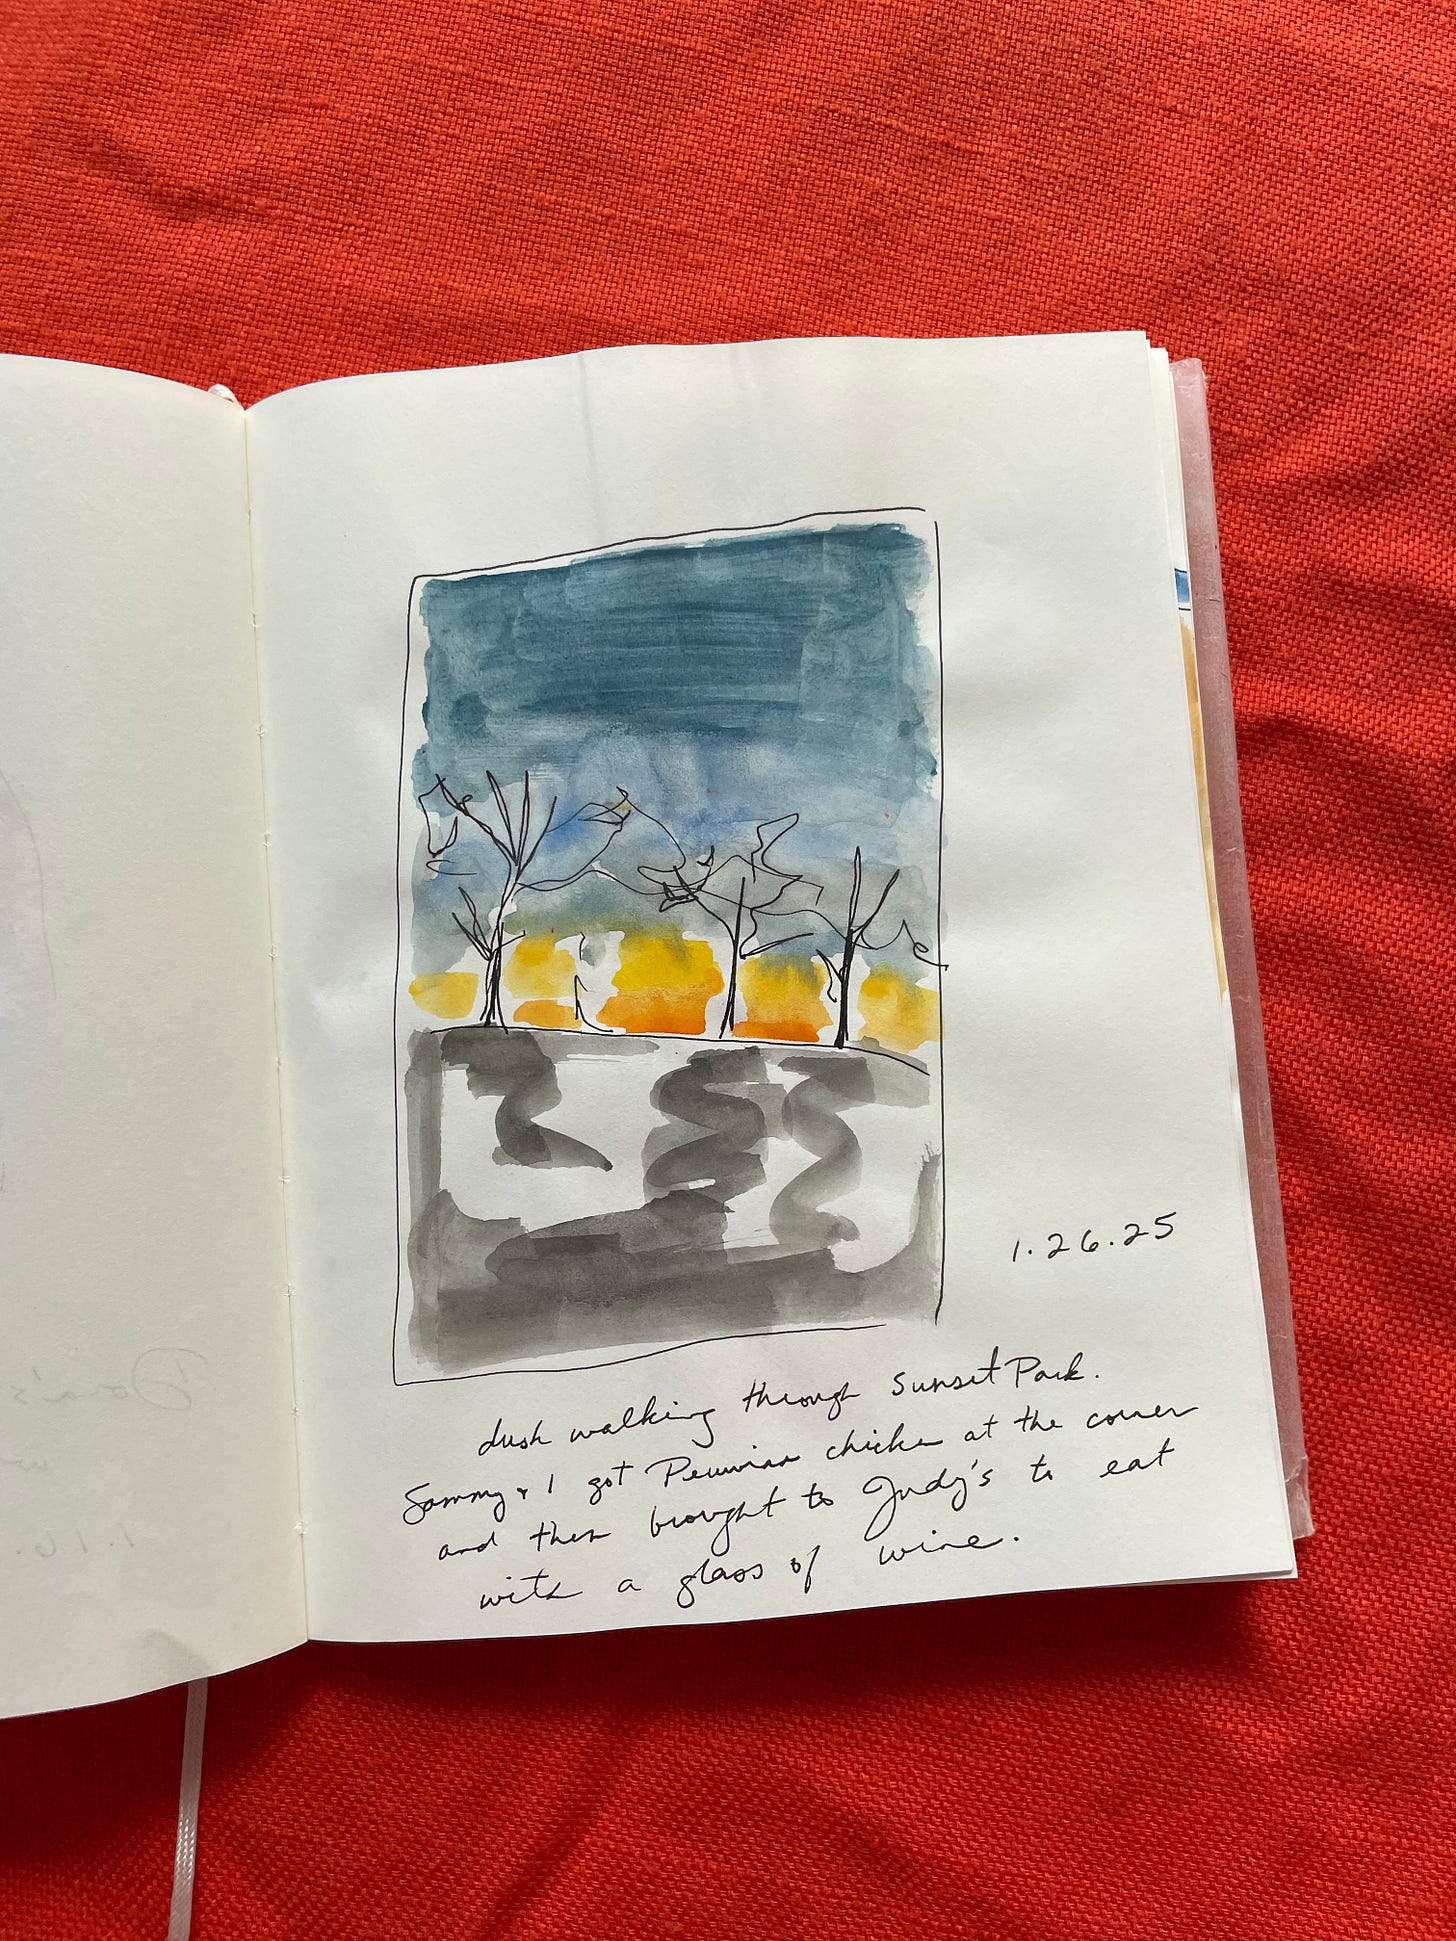 1.26.25
dusk walking through Sunset Park.
Sammy & I got Peruvian chicken at the corner
and then brought to Judy's to eat
with a glass of wine.